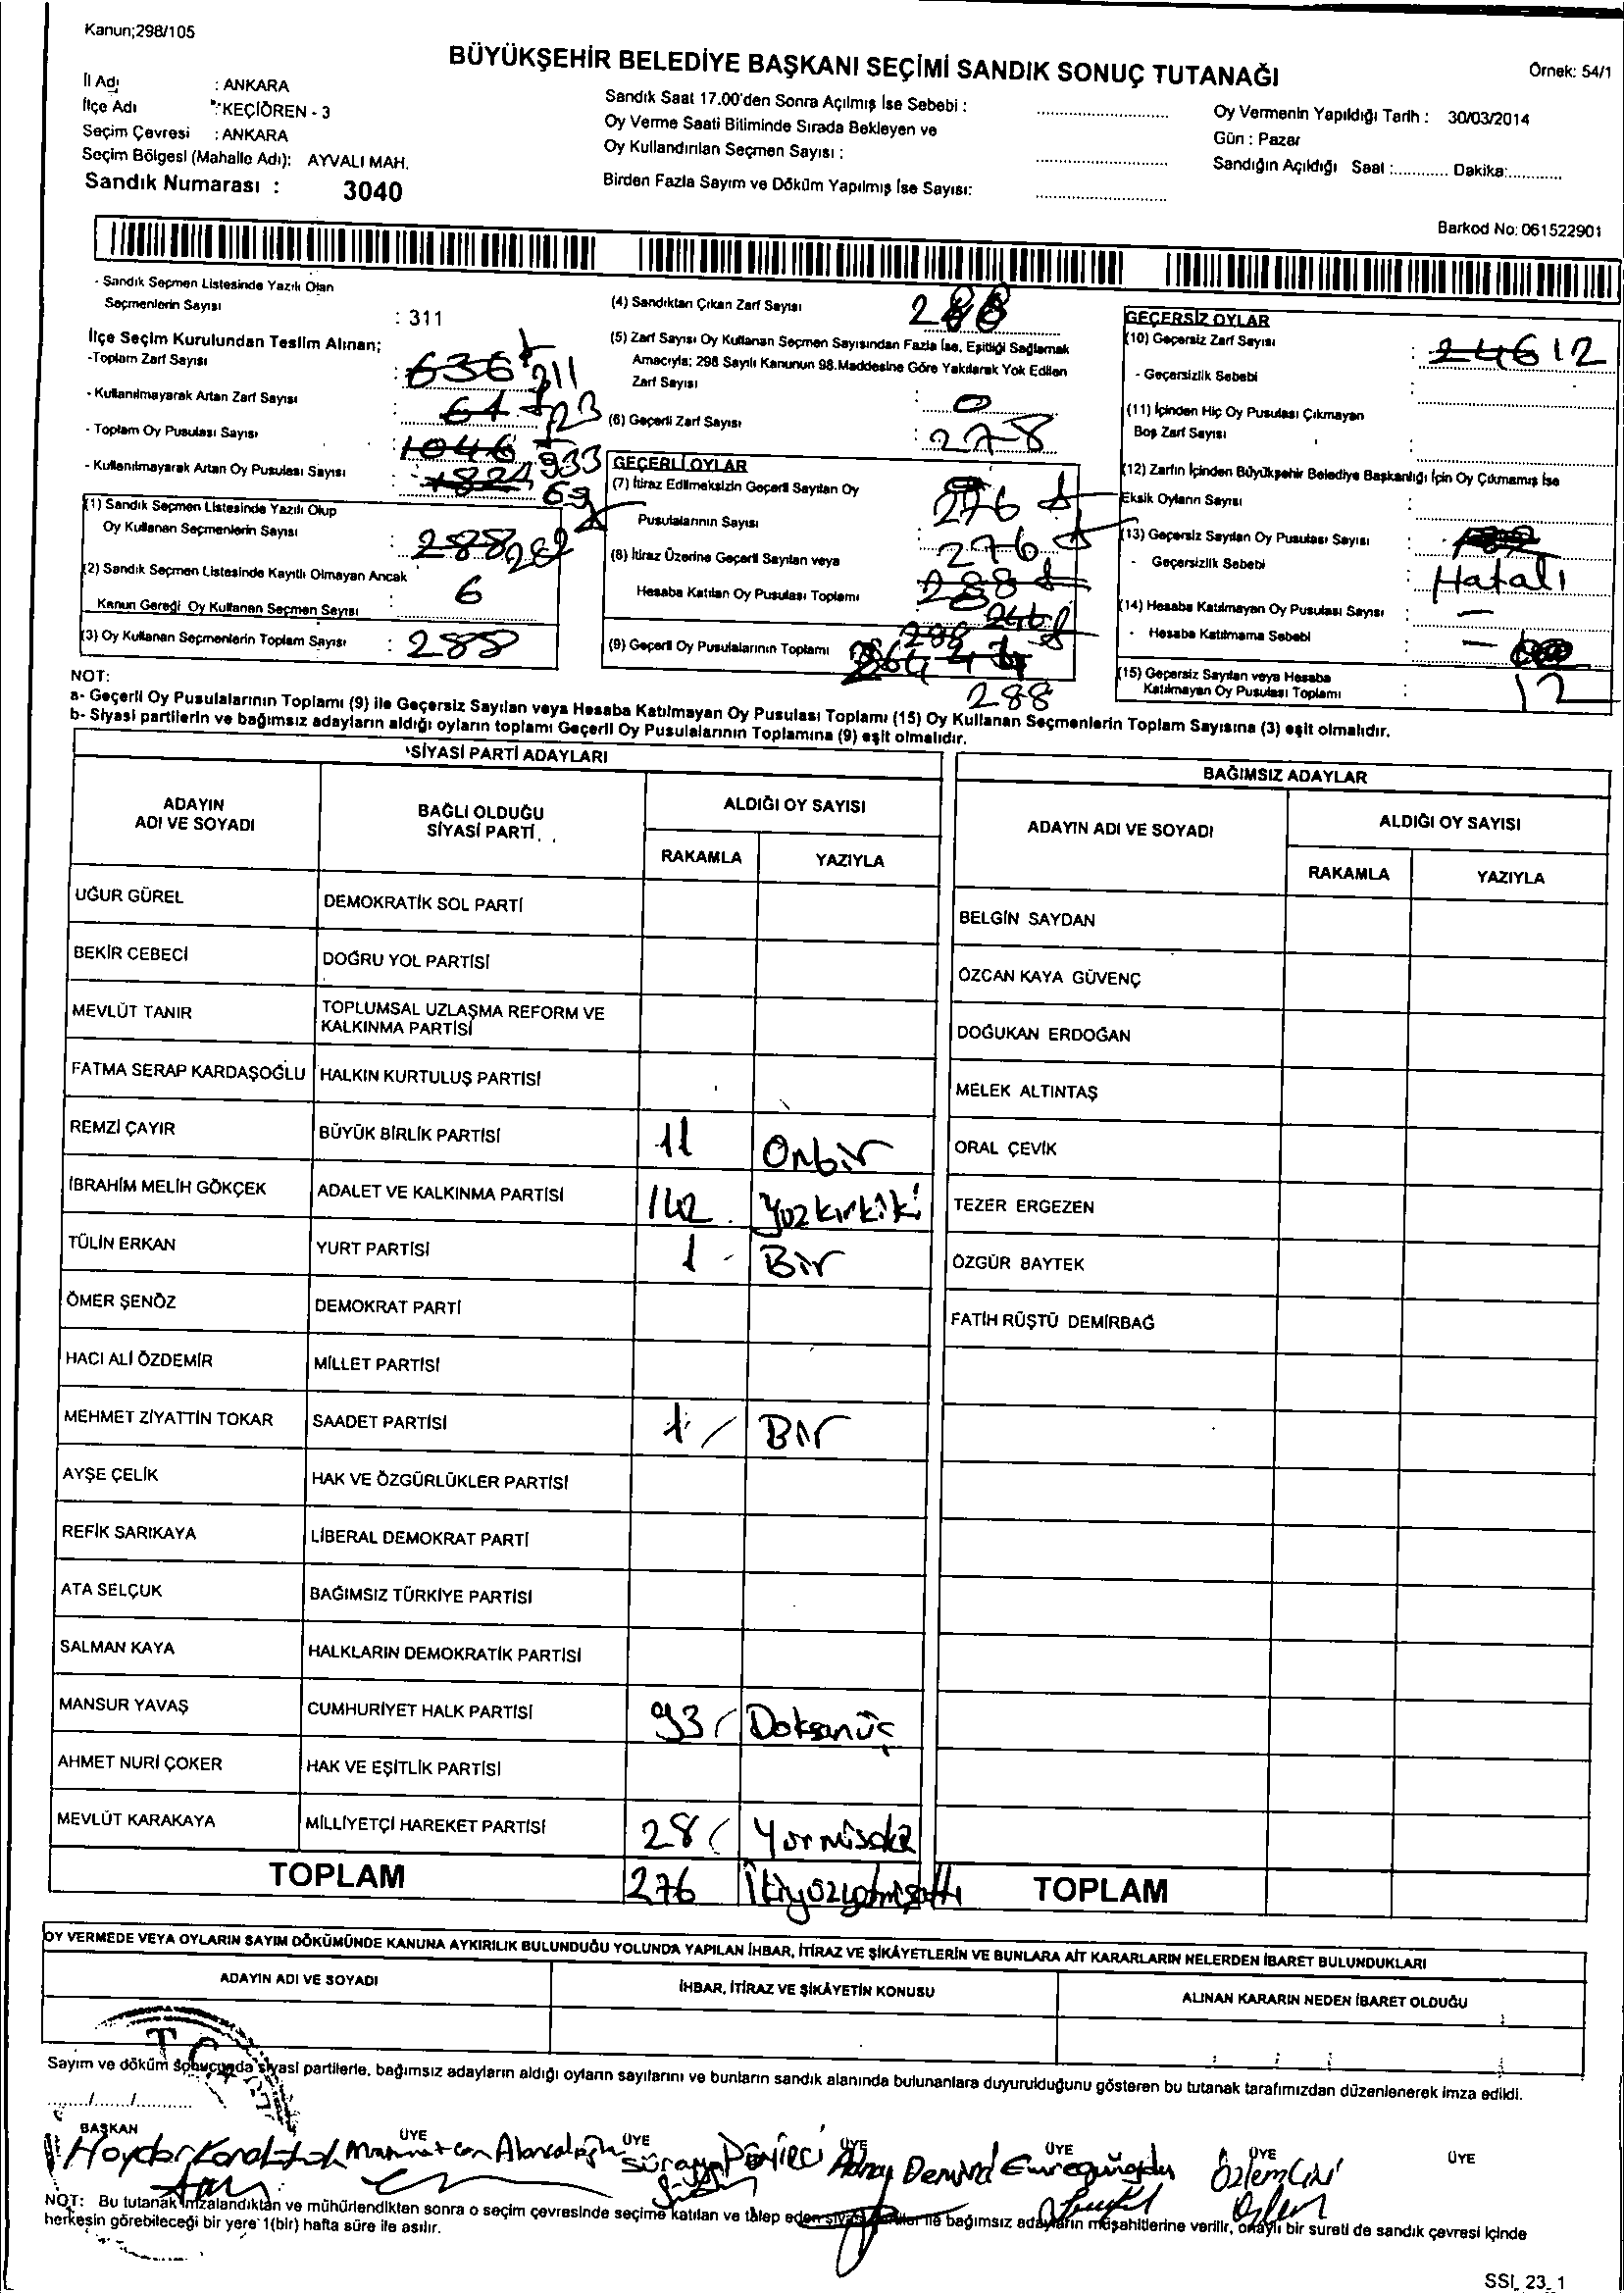 Kanun;298/105
BÜYÜKŞEHİR BELEDİYE BAŞKANI SEÇİMİ SANDIK SONUÇ TUTANAĞI
Örnek: 54/1
İl Adı : ANKARA
İlçe Adı : KEÇİÖREN - 3
Seçim Çevresi : ANKARA
Seçim Bölgesi (Mahalle Adı): AYVALI MAH.
Sandık Numarası : 3040
Sandık Saat 17.00'den Sonra Açılmış İse Sebebi :
Oy Verme Saati Bitiminde Sırada Bekleyen ve
Oy Kullandırılan Seçmen Sayısı :
Birden Fazla Sayım ve Döküm Yapılmış İse Sayısı:
Oy Vermenin Yapıldığı Tarih : 30/03/2014
Gün : Pazar
Sandığın Açıldığı Saat :............ Dakika:............
Barkod No: 061522901
- Sandık Seçmen Listesinde Yazılı Olan
Seçmenlerin Sayısı : 311
İlçe Seçim Kurulundan Teslim Alınan;
-Toplam Zarf Sayısı : 636 311
- Kullanılmayarak Artan Zarf Sayısı : 61 23
- Toplam Oy Pusulası Sayısı : 1046 933
- Kullanılmayarak Artan Oy Pusulası Sayısı :
(1) Sandık Seçmen Listesinde Yazılı Olup
Oy Kullanan Seçmenlerin Sayısı : 288 282
(2) Sandık Seçmen Listesinde Kayıtlı Olmayan Ancak
Kanun Gereği Oy Kullanan Seçmen Sayısı : 6
(3) Oy Kullanan Seçmenlerin Toplam Sayısı : 288
(4) Sandıktan Çıkan Zarf Sayısı 288
(5) Zarf Sayısı Oy Kullanan Seçmen Sayısından Fazla İse, Eşitliği Sağlamak
Amacıyla; 298 Sayılı Kanunun 98.Maddesine Göre Yakılarak Yok Edilen
Zarf Sayısı : 0
(6) Geçerli Zarf Sayısı : 278
GEÇERLİ OYLAR
(7) İtiraz Edilmeksizin Geçerli Sayılan Oy
Pusulalarının Sayısı : 276
(8) İtiraz Üzerine Geçerli Sayılan veya : 276
Hesaba Katılan Oy Pusulası Toplamı 288
(9) Geçerli Oy Pusulalarının Toplamı 288
288
GEÇERSİZ OYLAR
(10) Geçersiz Zarf Sayısı : 246 12
- Geçersizlik Sebebi :
(11) İçinden Hiç Oy Pusulası Çıkmayan
Boş Zarf Sayısı :
(12) Zarfın İçinden Büyükşehir Belediye Başkanlığı İçin Oy Çıkmamış İse
Eksik Oyların Sayısı :
(13) Geçersiz Sayılan Oy Pusulası Sayısı :
- Geçersizlik Sebebi : Hatalı
(14) Hesaba Katılmayan Oy Pusulası Sayısı : –
- Hesaba Katılmama Sebebi : –
(15) Geçersiz Sayılan veya Hesaba
Katılmayan Oy Pusulası Toplamı : 12
NOT:
a- Geçerli Oy Pusulalarının Toplamı (9) ile Geçersiz Sayılan veya Hesaba Katılmayan Oy Pusulası Toplamı (15) Oy Kullanan Seçmenlerin Toplam Sayısına (3) eşit olmalıdır.
b- Siyasi partilerin ve bağımsız adayların aldığı oyların toplamı Geçerli Oy Pusulalarının Toplamına (9) eşit olmalıdır.
SİYASİ PARTİ ADAYLARI
ADAYIN ADI VE SOYADI
BAĞLI OLDUĞU SİYASİ PARTİ
ALDIĞI OY SAYISI
RAKAMLA YAZIYLA
UĞUR GÜREL DEMOKRATİK SOL PARTİ
BEKİR CEBECİ DOĞRU YOL PARTİSİ
MEVLÜT TANIR TOPLUMSAL UZLAŞMA REFORM VE
KALKINMA PARTİSİ
FATMA SERAP KARDAŞOĞLU HALKIN KURTULUŞ PARTİSİ
REMZİ ÇAYIR BÜYÜK BİRLİK PARTİSİ 11 Onbir
İBRAHİM MELİH GÖKÇEK ADALET VE KALKINMA PARTİSİ 142 Yüzkırkiki
TÜLİN ERKAN YURT PARTİSİ 1 - Bir
ÖMER ŞENÖZ DEMOKRAT PARTİ
HACI ALİ ÖZDEMİR MİLLET PARTİSİ
MEHMET ZİYATTİN TOKAR SAADET PARTİSİ 1 / Bir
AYŞE ÇELİK HAK VE ÖZGÜRLÜKLER PARTİSİ
REFİK SARIKAYA LİBERAL DEMOKRAT PARTİ
ATA SELÇUK BAĞIMSIZ TÜRKİYE PARTİSİ
SALMAN KAYA HALKLARIN DEMOKRATİK PARTİSİ
MANSUR YAVAŞ CUMHURİYET HALK PARTİSİ 93 / Doksanüç
AHMET NURİ ÇOKER HAK VE EŞİTLİK PARTİSİ
MEVLÜT KARAKAYA MİLLİYETÇİ HAREKET PARTİSİ 28 (
TOPLAM 276 İkiyüzyetmişaltı
BAĞIMSIZ ADAYLAR
ADAYIN ADI VE SOYADI
ALDIĞI OY SAYISI
RAKAMLA YAZIYLA
BELGİN SAYDAN
ÖZCAN KAYA GÜVENÇ
DOĞUKAN ERDOĞAN
MELEK ALTINTAŞ
ORAL ÇEVİK
TEZER ERGEZEN
ÖZGÜR BAYTEK
FATİH RÜŞTÜ DEMİRBAĞ
TOPLAM
OY VERMEDE VEYA OYLARIN SAYIM DÖKÜMÜNDE KANUNA AYKIRILIK BULUNDUĞU YOLUNDA YAPILAN İHBAR, İTİRAZ VE ŞİKÂYETLERİN VE BUNLARA AİT KARARLARIN NELERDEN İBARET BULUNDUKLARI
ADAYIN ADI VE SOYADI
İHBAR, İTİRAZ VE ŞİKÂYETİN KONUSU
ALINAN KARARIN NEDEN İBARET OLDUĞU
Sayım ve döküm sonucunda siyasi partilerle, bağımsız adayların aldığı oyların sayılarını ve bunların sandık alanında bulunanlara duyurulduğunu gösteren bu tutanak tarafımızdan düzenlenerek imza edildi.
....../....../............
BAŞKAN ÜYE ÜYE ÜYE ÜYE ÜYE ÜYE
NOT: Bu tutanak imzalandıktan ve mühürlendikten sonra o seçim çevresinde seçime katılan ve talep eden siyasi partiler ile bağımsız adayların müşahitlerine verilir, onaylı bir sureti de sandık çevresi içinde
herkesin görebileceği bir yere 1(bir) hafta süre ile asılır.
SSI_23_1